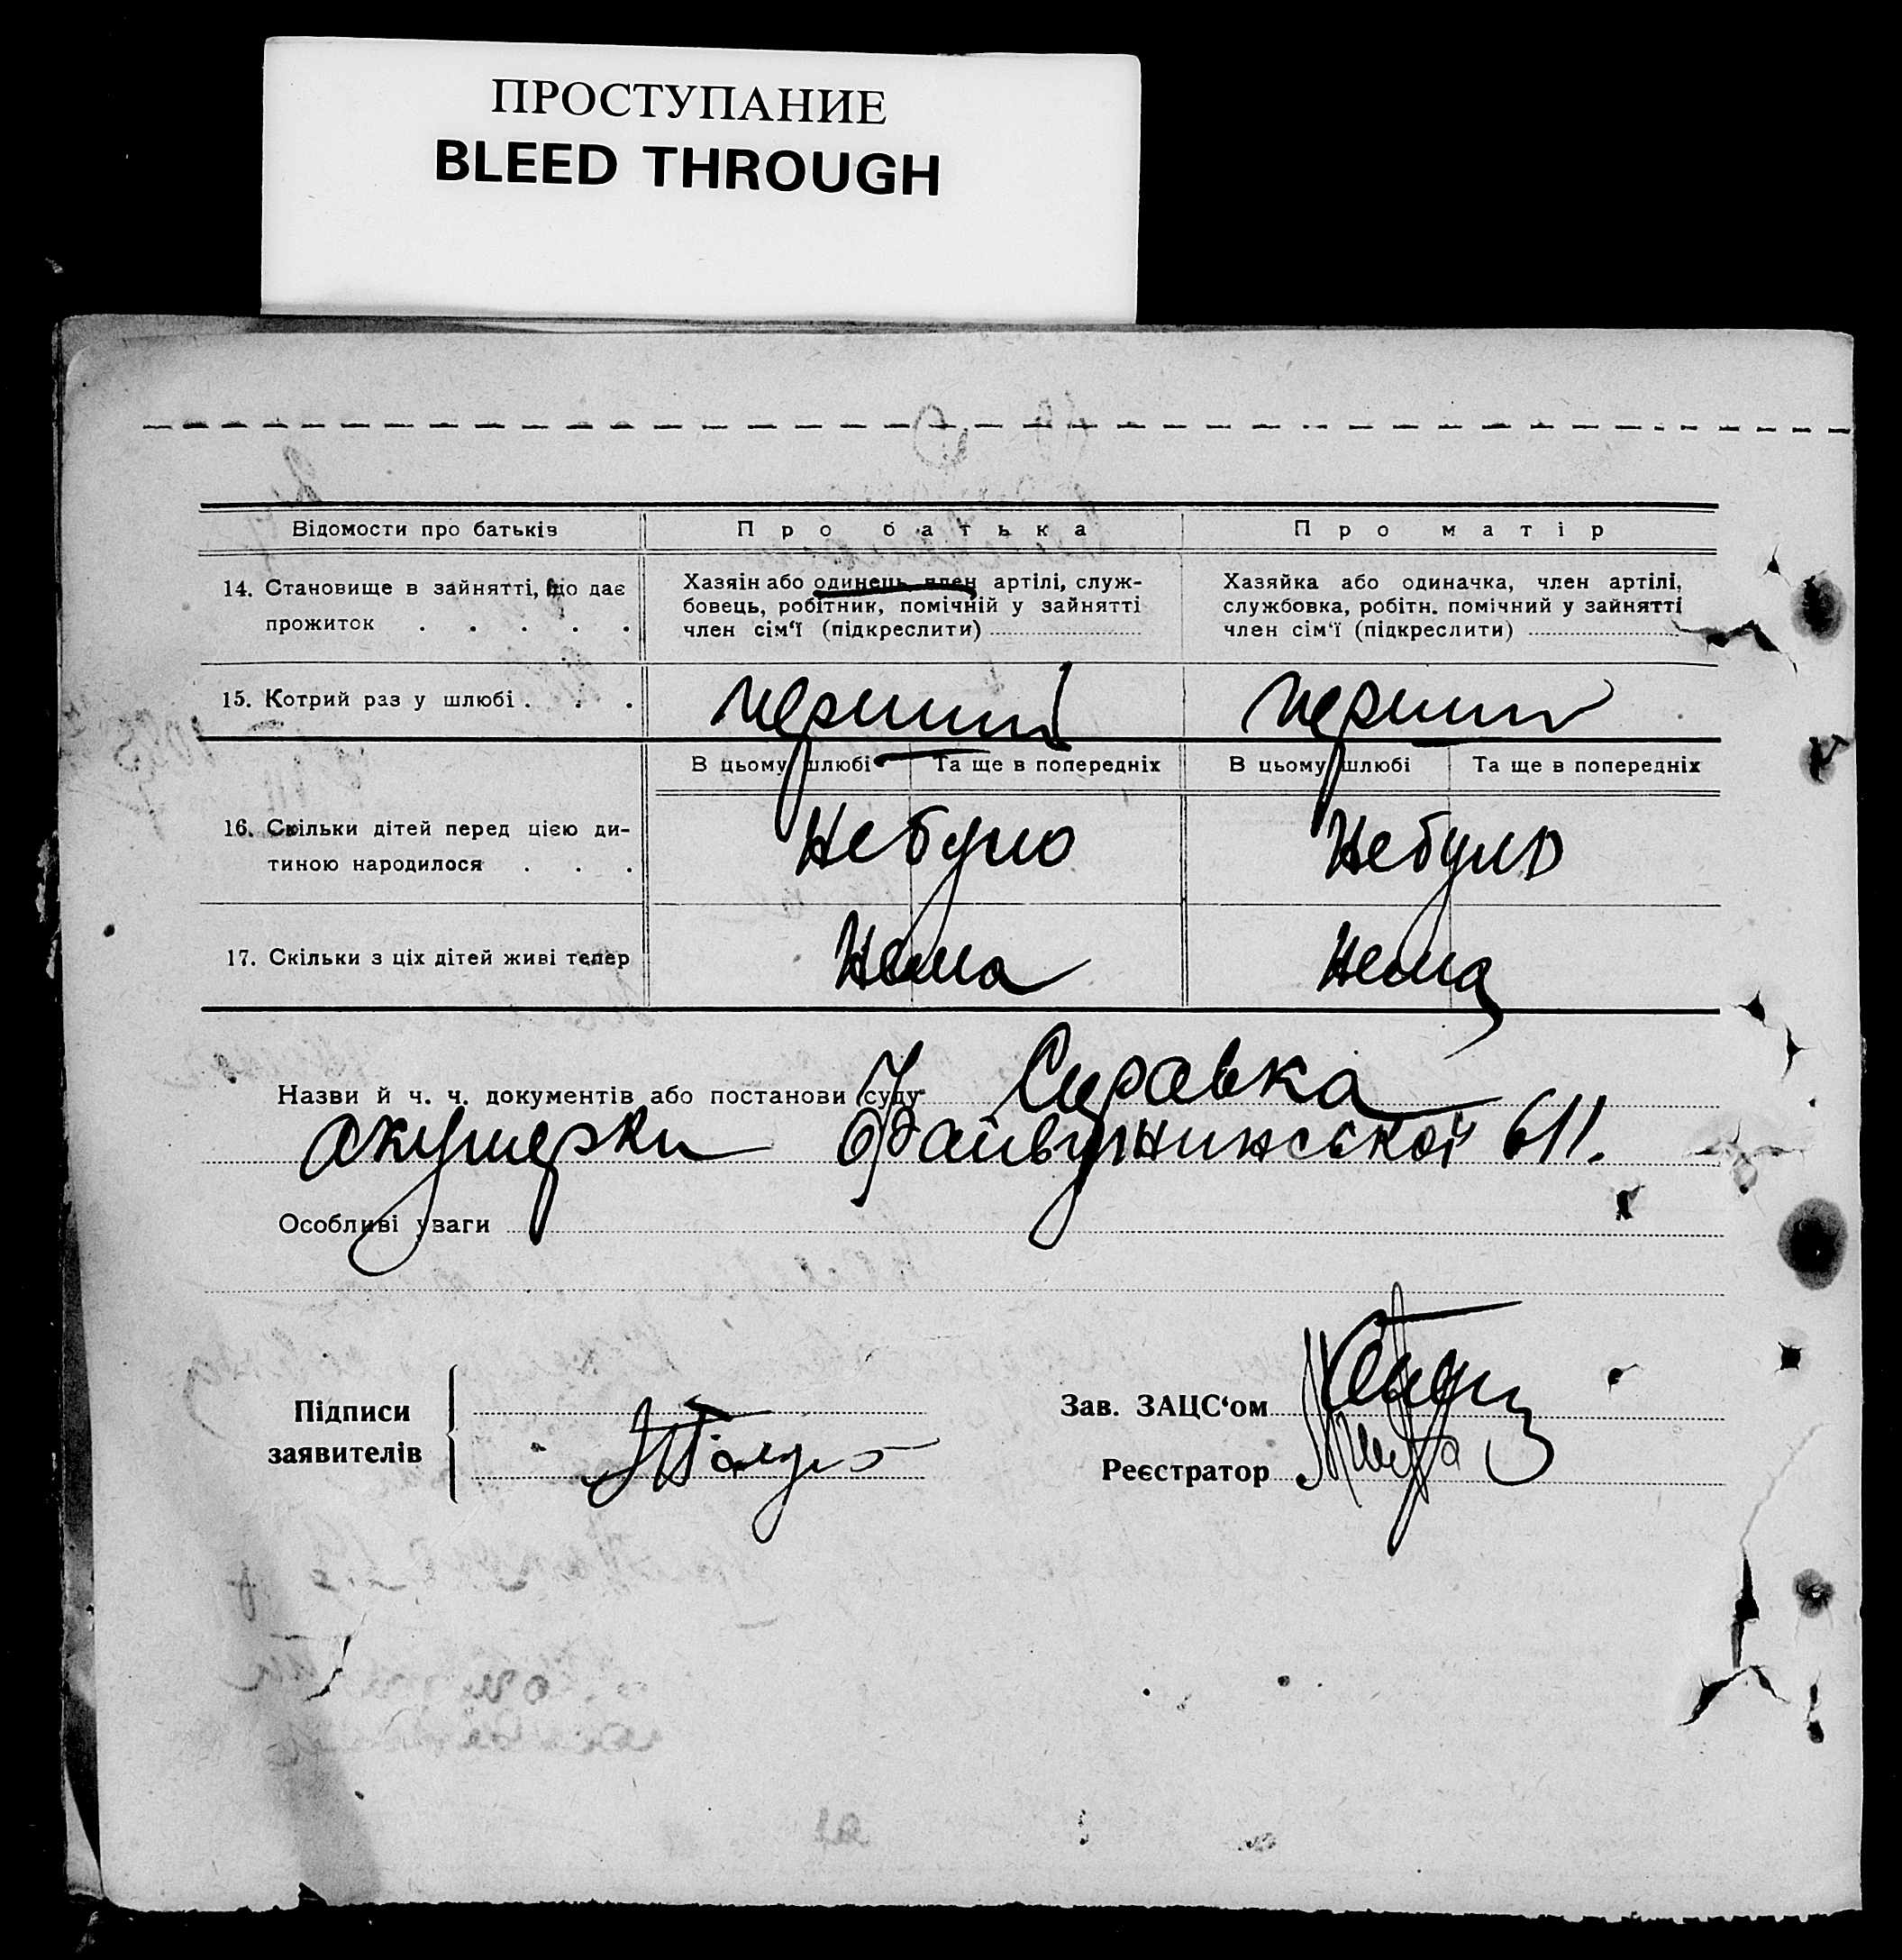 ПРОСТУПАНИЕ
BLEED THROUGH
Відомости про батьків
Про батька
Про матір
14. Становище в зайнятті, що дає
прожиток . . . . .
Хазяін або одинець, член артілі, служ-
бовець, робітник, помічній у зайнятті
член сім'ї (підкреслити)
Хазяйка або одиначка, член артілі,
службовка, робітн. помічний у зайнятті
член сім'ї (підкреслити)
15. Котрий раз у шлюбі . . .
перший
перший
В цьому шлюбі
Та ще в попередніх
В цьому шлюбі
Та ще в попередніх
16. Скільки дітей перед цією ди-
тиною народилося . . .
Небуло
Небуло
17. Скільки з ціх дітей живі тепер
Нема
Нема
Назви й ч. ч. документів або постанови суду Справка
акушерки 611.
Особливі уваги
Підписи
заявителів
Зав. ЗАЦС'ом
Реєстратор